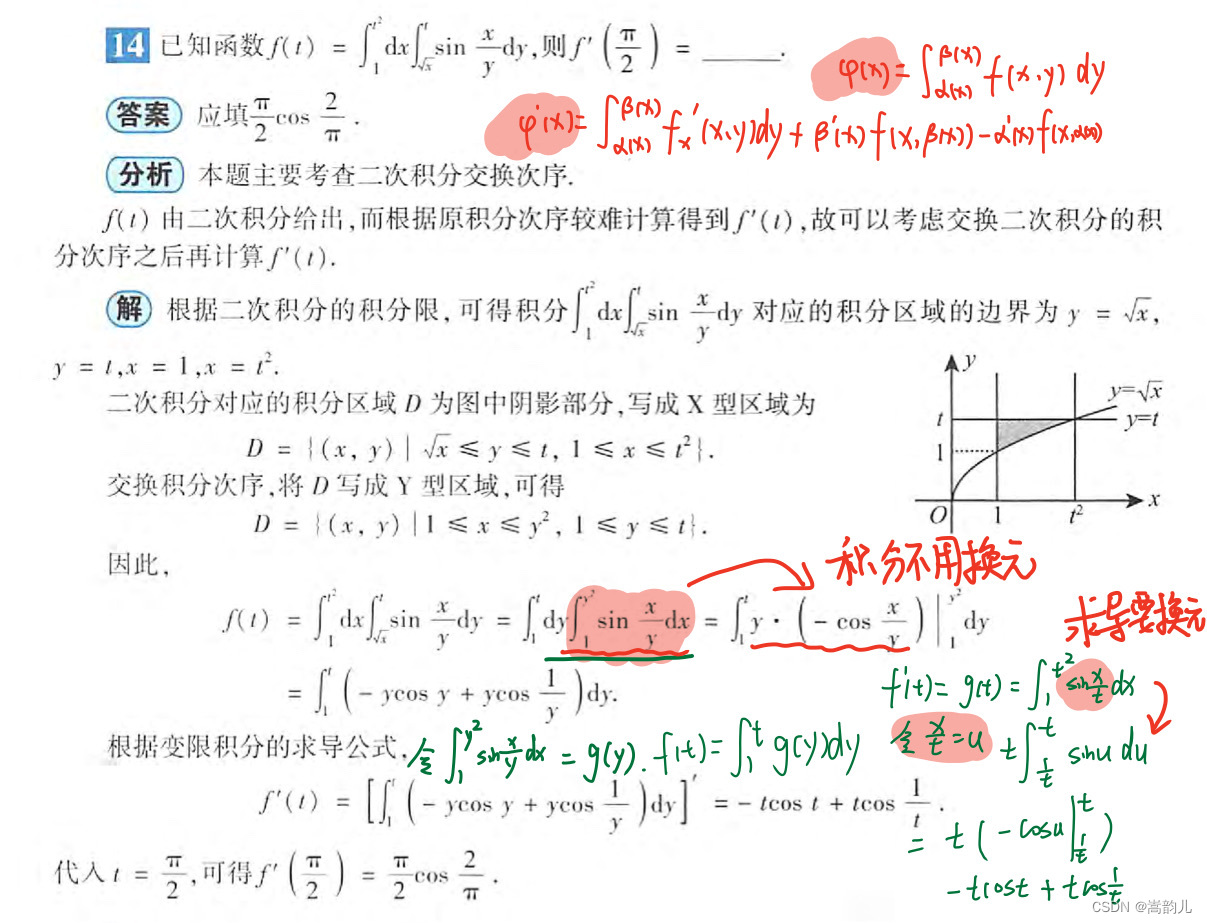 14 已知函数f(t) = ∫₁^{t²}dx∫_{√x}^{t} sin x/y dy,则f′(π/2) = ______.
φ(x) = ∫_{α(x)}^{β(x)} f(x,y) dy
答案 应填 π/2 cos 2/π .
φ′(x) = ∫_{α(x)}^{β(x)} f′ₓ(x,y)dy + β′(x) f(x,β(x)) - α′(x) f(x,α(x))
分析 本题主要考查二次积分交换次序.
f(t) 由二次积分给出,而根据原积分次序较难计算得到f′(t),故可以考虑交换二次积分的积
分次序之后再计算f′(t).
解 根据二次积分的积分限,可得积分∫₁^{t²}dx∫_{√x}^{t} sin x/y dy 对应的积分区域的边界为 y = √x,
y = t,x = 1,x = t².
二次积分对应的积分区域 D 为图中阴影部分,写成 X 型区域为
D = {(x, y) | √x ≤ y ≤ t, 1 ≤ x ≤ t²}.
交换积分次序,将 D 写成 Y 型区域,可得
D = {(x, y) | 1 ≤ x ≤ y², 1 ≤ y ≤ t}.
y
y=√x
t
y=t
1
O
1
t²
x
因此,
积分不用换元
f(t) = ∫₁^{t²}dx∫_{√x}^{t} sin x/y dy = ∫₁^{t}dy∫₁^{y²} sin x/y dx = ∫₁^{t} y · (- cos x/y) |₁^{y²} dy
求导要换元
= ∫₁^{t} (- ycos y + ycos 1/y) dy.
f′(t) = g(t) = ∫₁^{t²} sin x/t dx
根据变限积分的求导公式,
令 ∫₁^{y²} sin x/y dx = g(y) . f(t) = ∫₁^{t} g(y)dy
令 x/t = u
t∫_{1/t}^{t} sinu du
f′(t) = [∫₁^{t} (- ycos y + ycos 1/y) dy]′ = - tcos t + tcos 1/t .
= t (-cosu |_{1/t}^{t})
代入 t = π/2,可得f′(π/2) = π/2 cos 2/π .
-tcost + tcos 1/t
CSDN @嵩韵儿